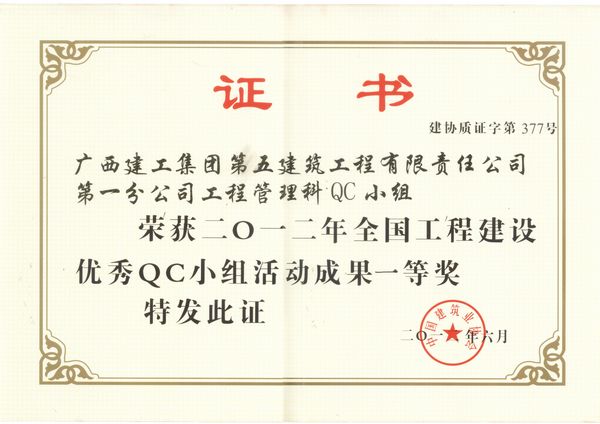 证书
建协质证字第 377号
广西建工集团第五建筑工程有限责任公司
第一分公司工程管理科QC小组
荣获二〇一二年全国工程建设
优秀QC小组活动成果一等奖
特发此证
中国建筑业协会
二〇一 年六月